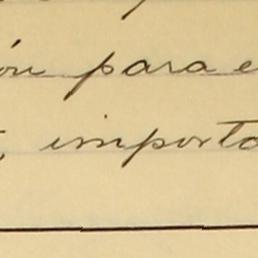 ón para e
, importa